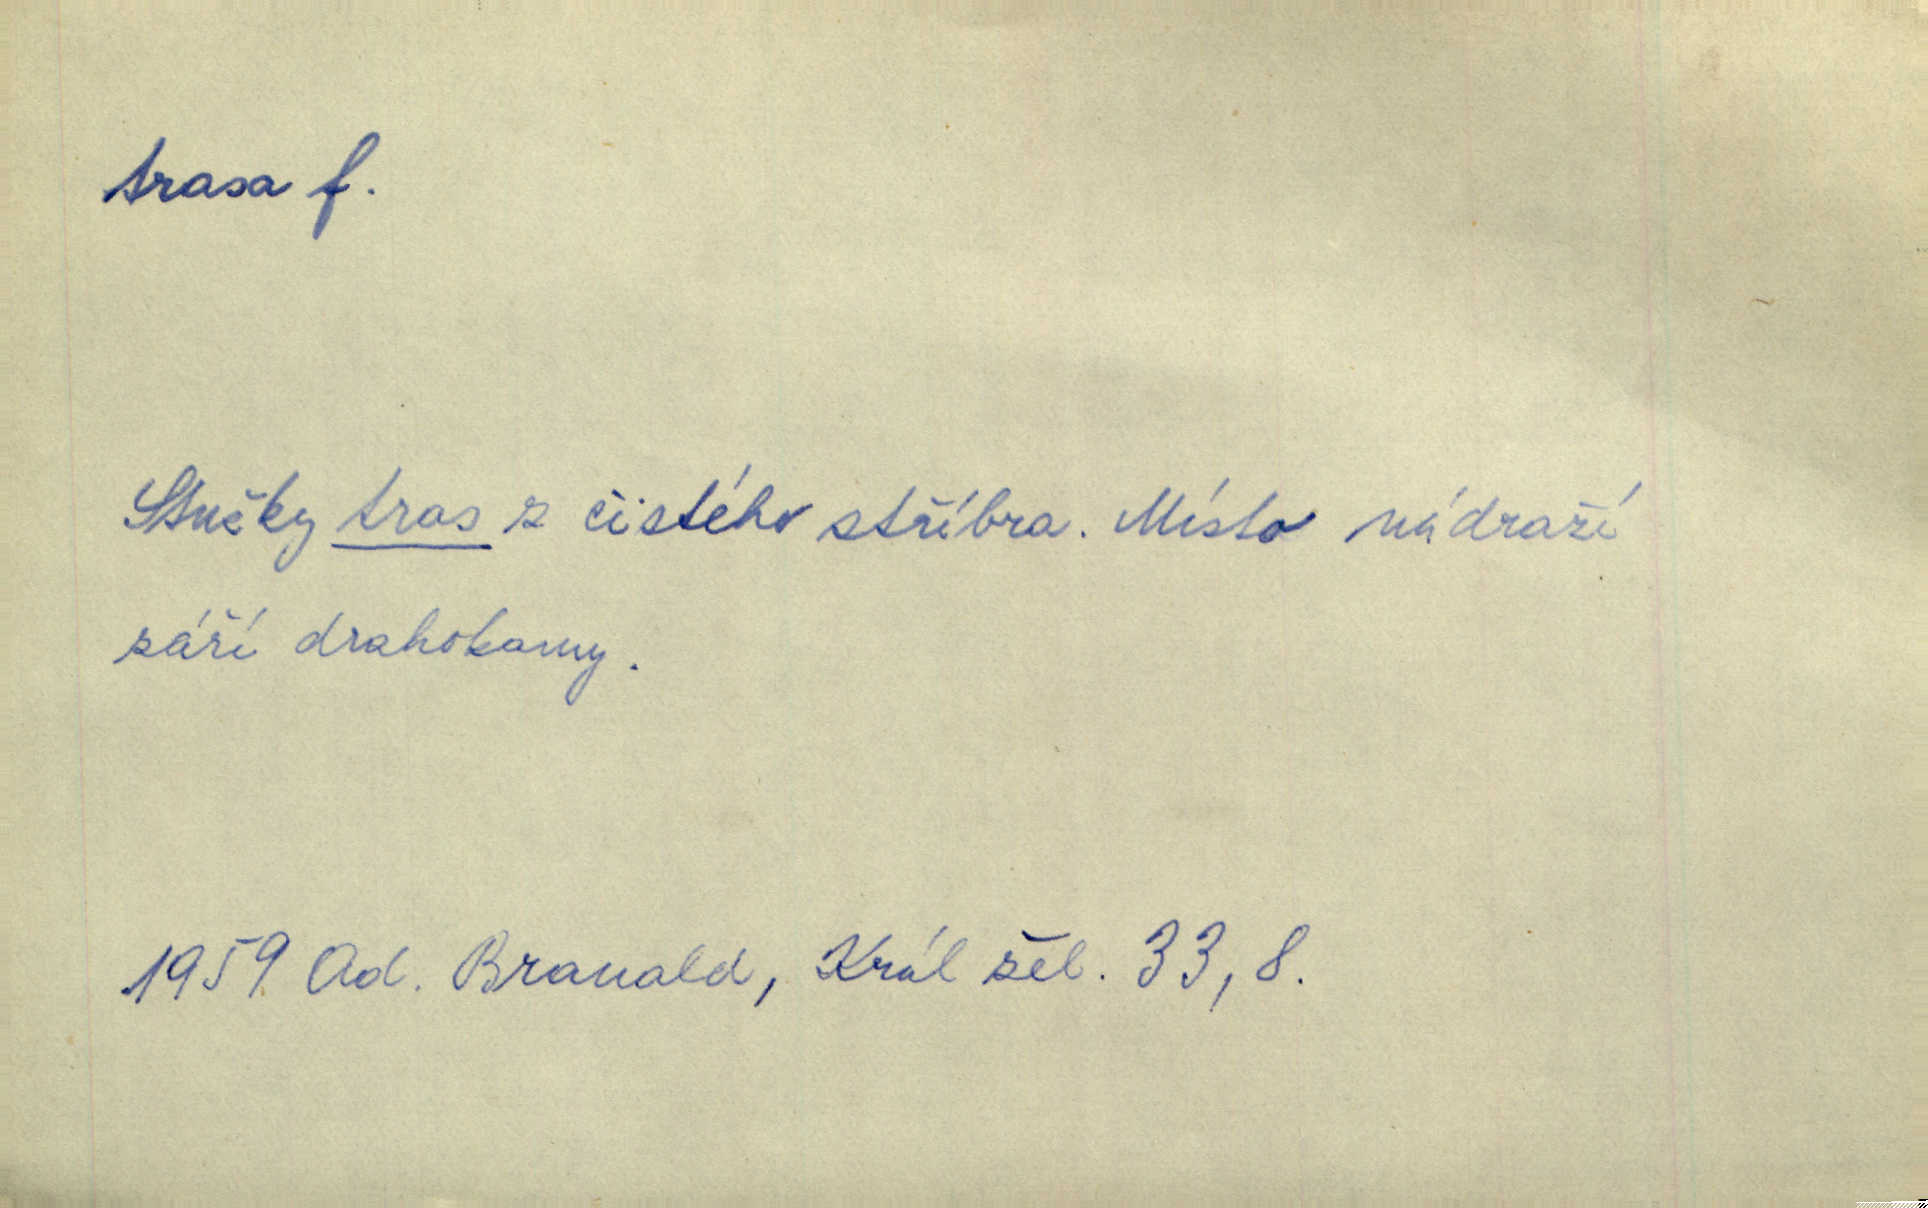 trasa f.
Stužky tras z čistého stříbra. Místo nádraží
září drahokamy.
1959 Ad. Branald, Král žel. 33, 8.